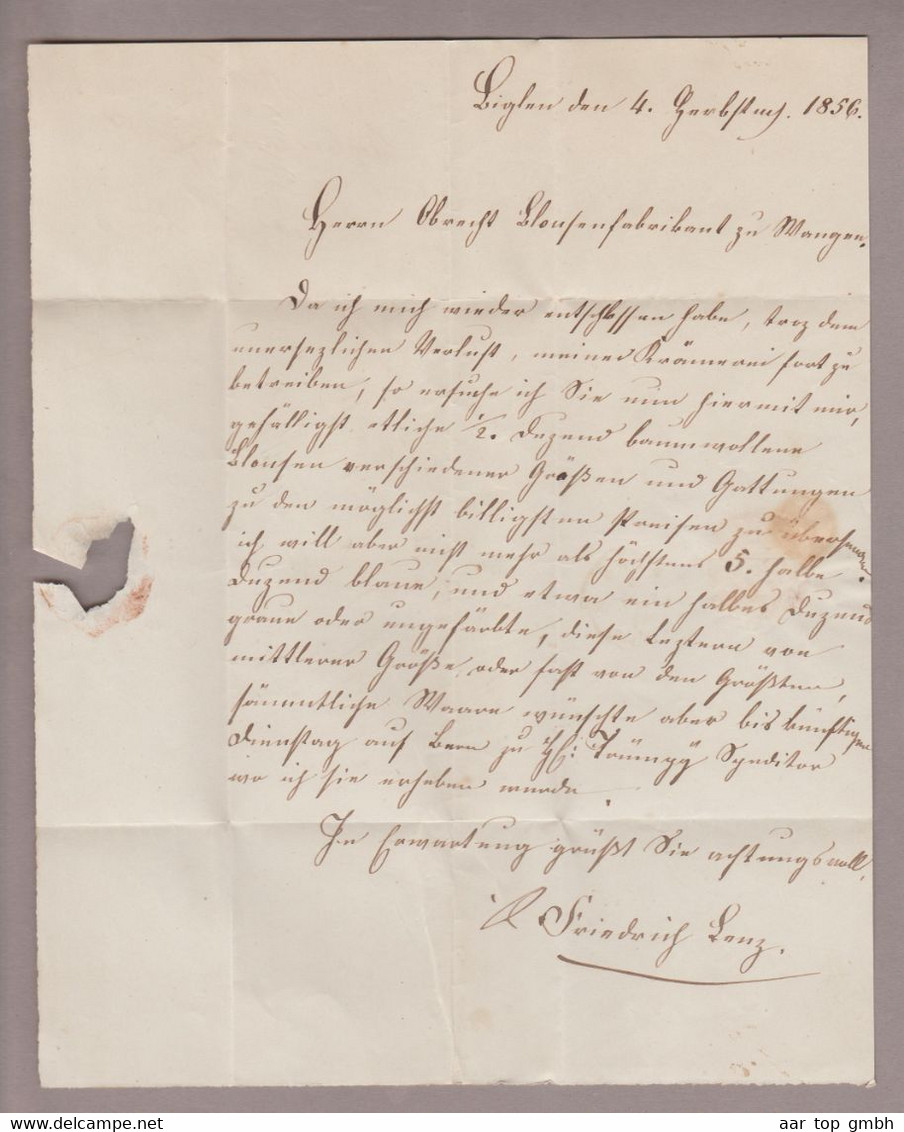 Biglen den 4. Herbstm. 1856.
Herrn Obrecht Blousenfabrikant zu Wangen.
Da ich mich wieder entschlossen habe, troz dem
unersezlichen Verlust, meine Krämerei fort zu
betreiben, so ersuche ich Sie nun hiermit mir,
gefälligst etliche 1/2. Duzend baumwollene
Blousen verschiedener Größen und Gattungen
zu den möglichst billigsten Preisen zu übersenden.
ich will aber nicht mehr als höchstens 5. halbe
Duzend blaue, und etwa ein halbes Duzend
graue oder ungefärbte, diese Leztern von
mittlerer Größe oder fast von den Größten,
sämmtliche Waare wünschte aber bis künftigen
Dienstag auf Bern zu H: Trümpÿ Speditor
wo ich sie erheben wurde.
In Erwartung grüßt Sie achtungsvoll,
Friedrich Lenz.
aar top gmbh